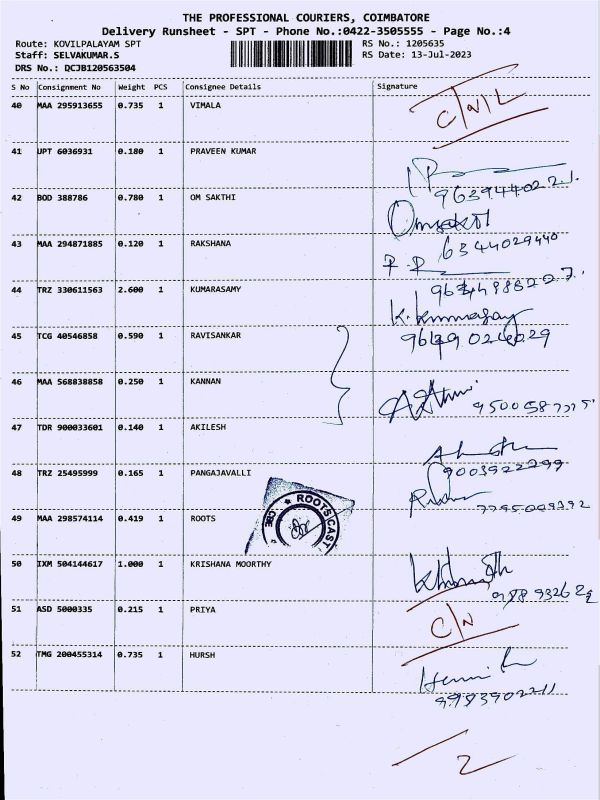 THE PROFESSIONAL COURIERS, COIMBATORE
Delivery Runsheet - SPT - Phone No.:0422-3505555 - Page No.:4
Route: KOVILPALAYAM SPT RS No.: 1205635
Staff: SELVAKUMAR.S RS Date: 13-Jul-2023
DRS No.: QCJB120563504
S No Consignment No Weight PCS Consignee Details Signature
40 MAA 295913655 0.735 1 VIMALA C/N/L
41 UPT 6036931 0.180 1 PRAVEEN KUMAR
42 BOD 388786 0.780 1 OM SAKTHI
Omsakti
43 MAA 294871885 0.120 1 RAKSHANA
6344029440
44 TRZ 330611563 2.600 1 KUMARASAMY
K. Kumarasamy
45 TCG 40546858 0.590 1 RAVISANKAR
46 MAA 568838858 0.250 1 KANNAN
47 TDR 900033601 0.140 1 AKILESH
9003922299
48 TRZ 25495999 0.165 1 PANGAJAVALLI
49 MAA 298574114 0.419 1 ROOTS
ROOTS CAST
CBE
50 IXM 504144617 1.000 1 KRISHANA MOORTHY
51 ASD 5000335 0.215 1 PRIYA C/N
52 TMG 200455314 0.735 1 HURSH
9983902211
2